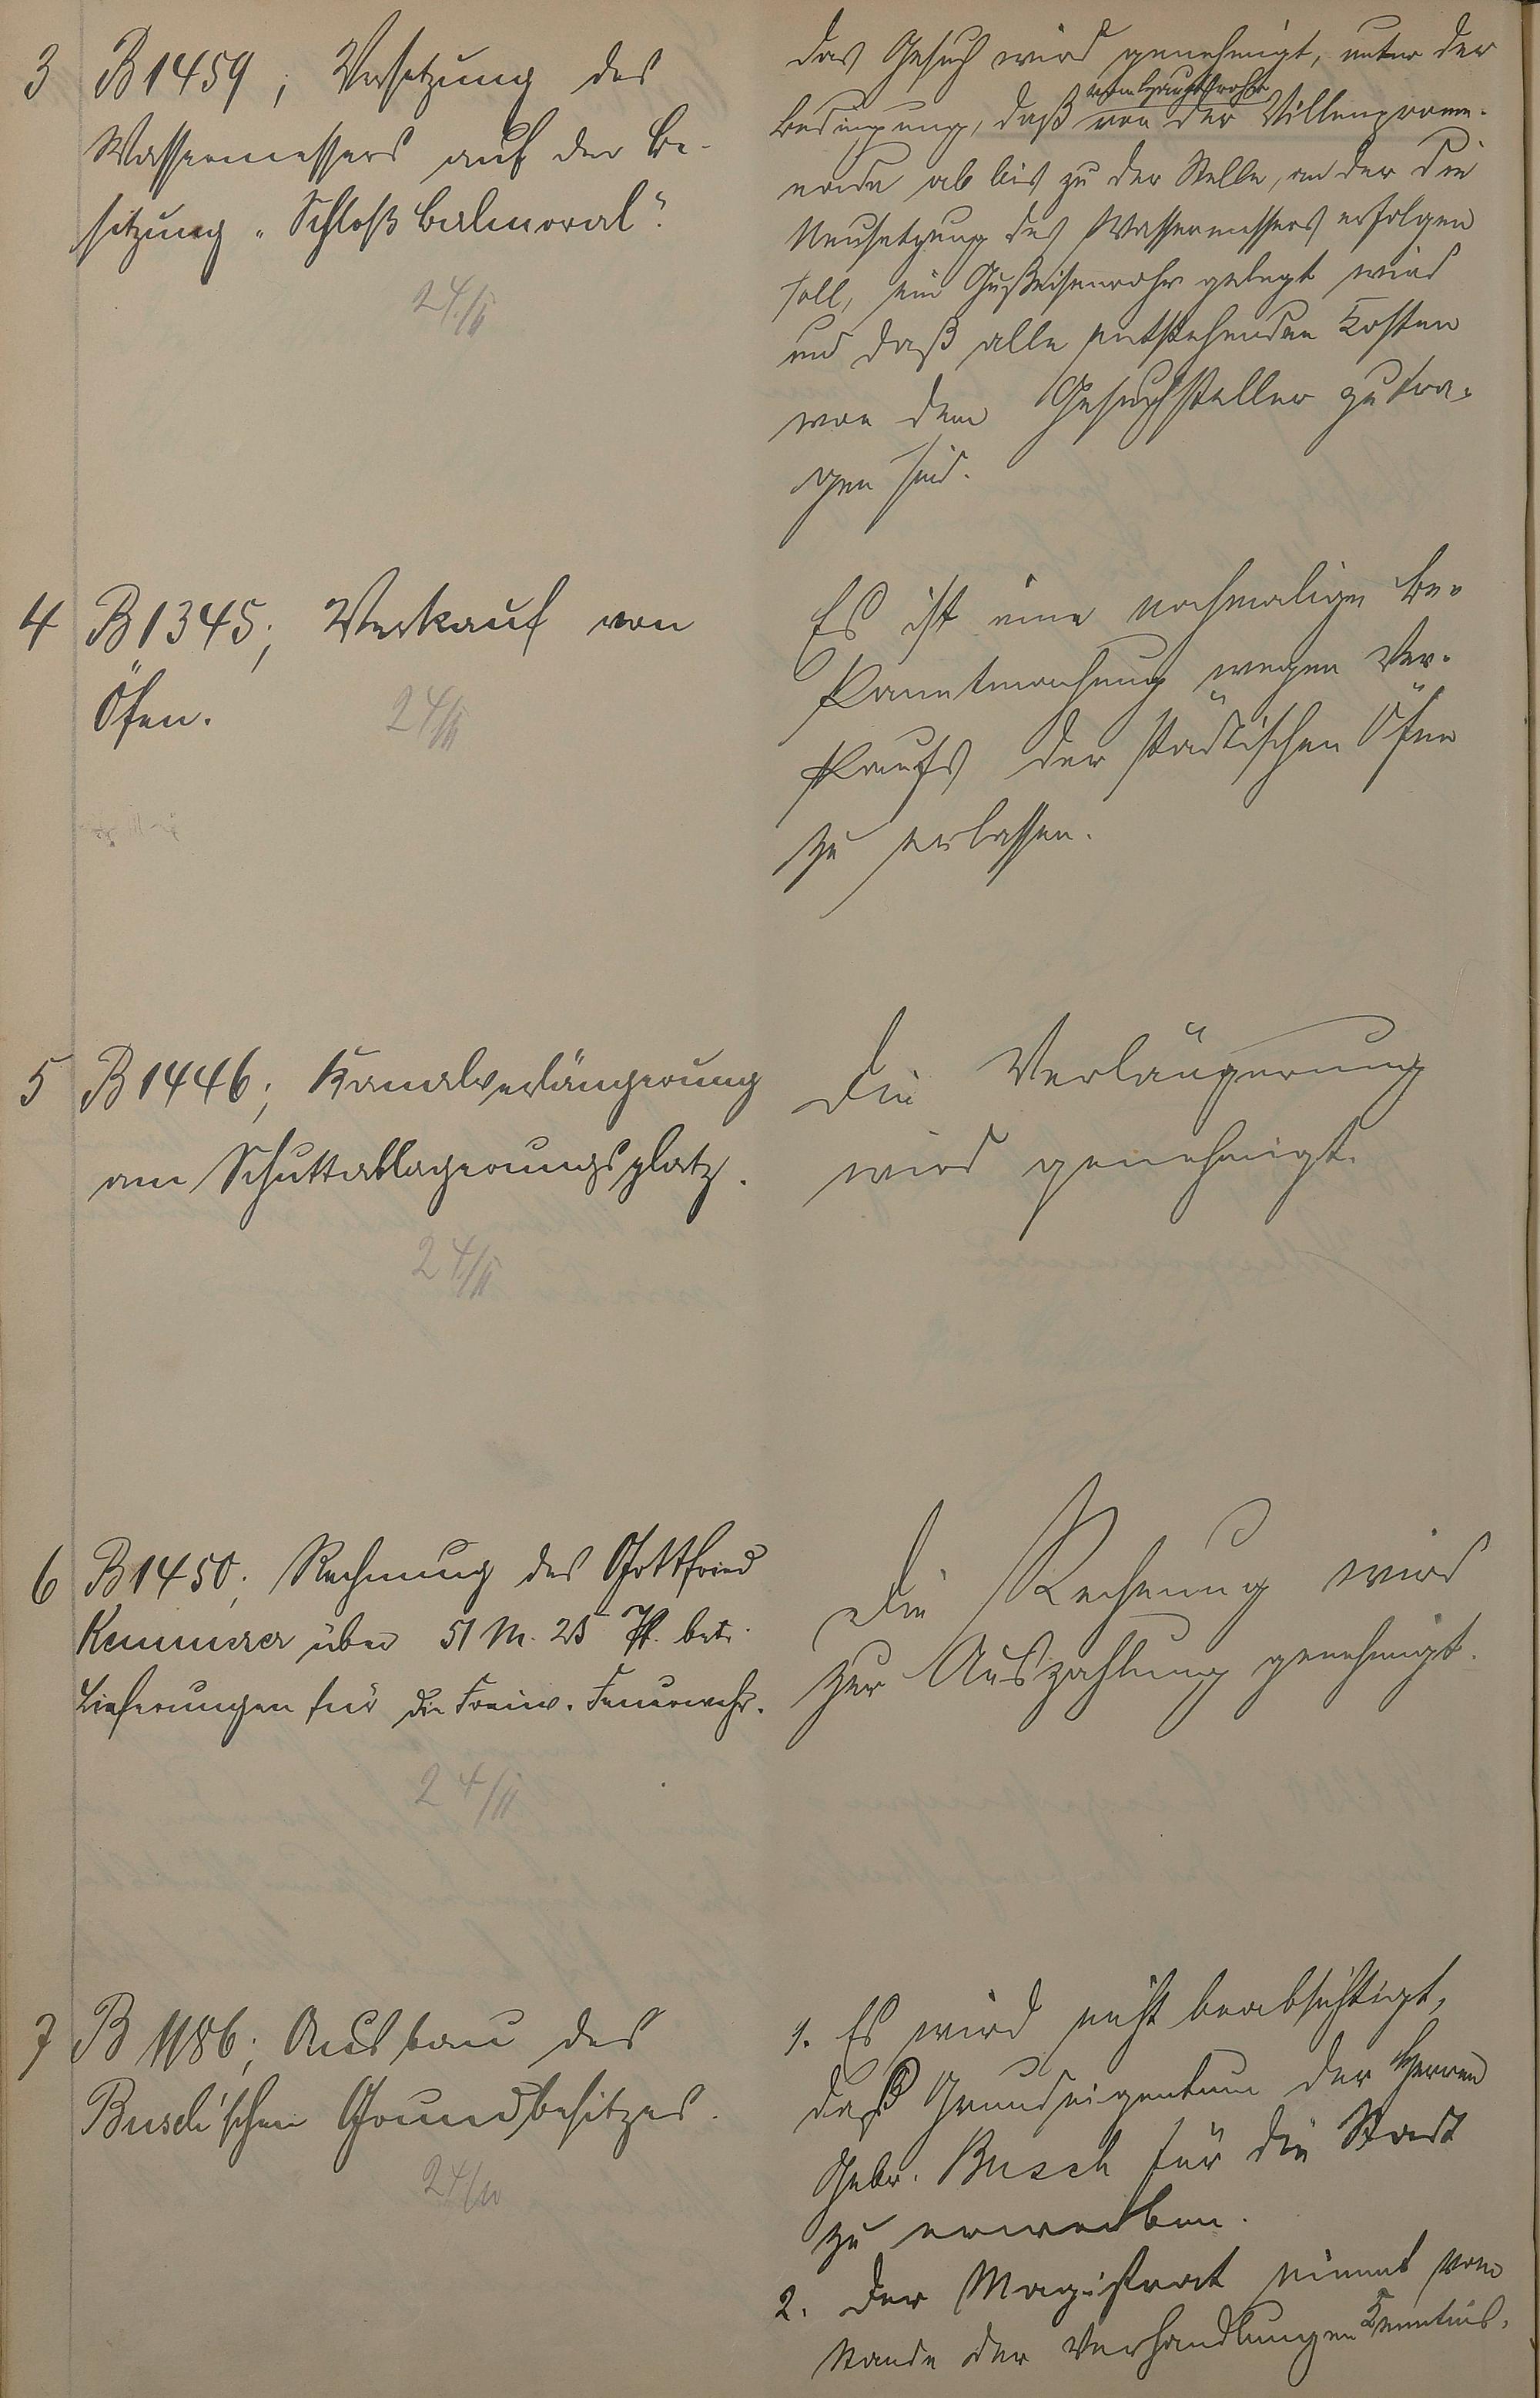 3 B 1459; Versetzung des
Wassermessers auf der Be-
sitzung „Schloß Balmoral“.
24/II
Das Gesuch wird genehmigt, unter der
vom Hauptrohr
Bedingung, daß von der Villenprome-
nade ab bis zu der Stelle, an der die
Neusetzung des Wassermessers erfolgen
soll, ein Gußeisenrohr gelegt wird
und daß alle entstehenden Kosten
von dem Gesuchsteller zu tra-
gen sind.
4 B 1345; Verkauf von
Öfen.
24/II
Es ist eine nochmalige Be-
kanntmachung wegen Ver-
kaufs der städtischen Öfen
zu erlassen.
5 B 1446; Kanalverlängerung
am Schuttablagerungsplatz.
24/II
Die Verlängerung
wird genehmigt.
6 B 1450; Rechnung des Gottfried
Kemmerer über 51 M. 25 Pf. betr.
Lieferungen für die Freiw. Feuerwehr.
24/II
Die Rechnung wird
zur Auszahlung genehmigt.
7 B 1186; Ausbau des
Busch'schen Grundbesitzes.
24/II
1. Es wird nicht beabsichtigt,
daß Grundeigentum der Herren
Gebr. Busch für die Stadt
zu erwerben.
2. Der Magistrat nimmt vom
Stande der Verhandlungen Kenntnis.